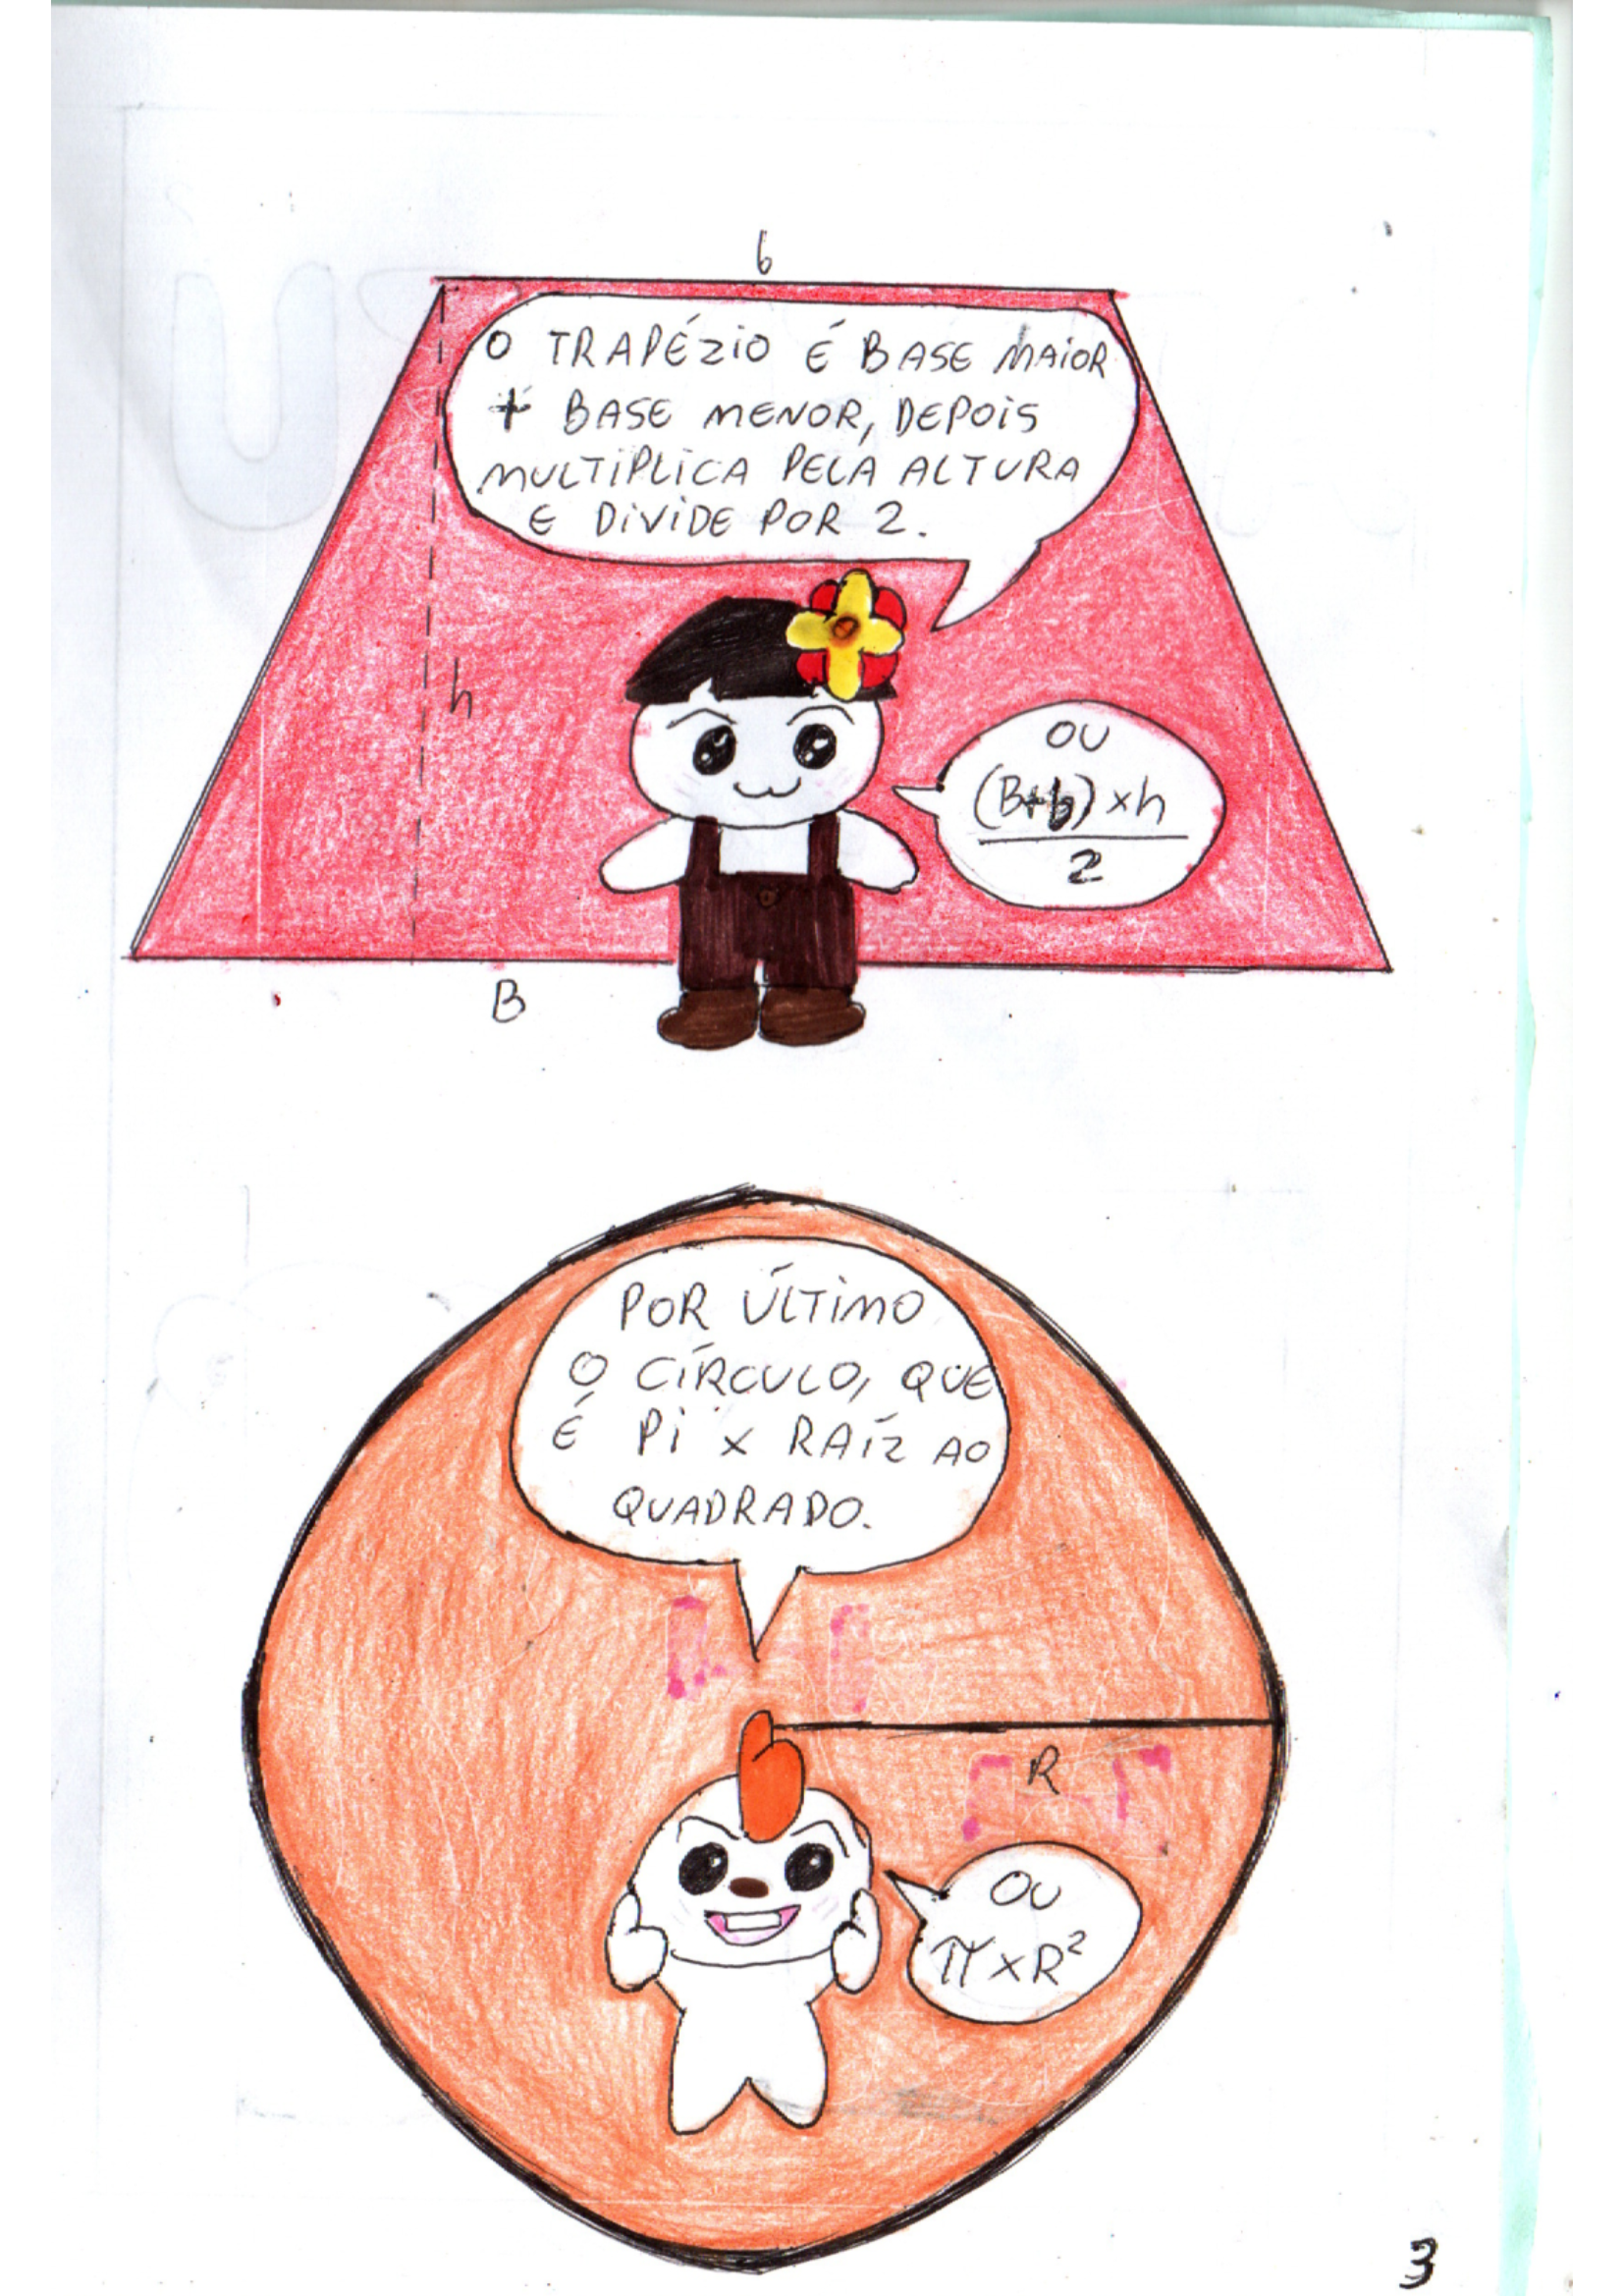 b
O TRAPÉZIO É BASE MAIOR
+ BASE MENOR, DEPOIS
MULTIPLICA PELA ALTURA
E DIVIDE POR 2.
h
OU
(B+b) x h
2
B
POR ÚLTIMO
O CÍRCULO, QUE
É Pi x RAÍZ AO
QUADRADO.
R
OU
π x R²
3